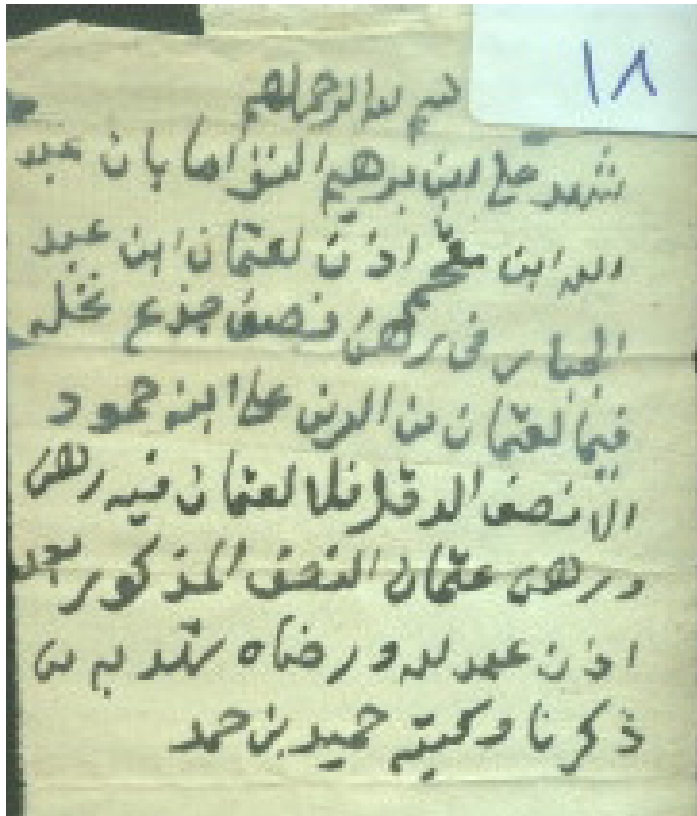 ١٨
بسم الله الرحمن الرحيم
شهد علي ابن برهيم بان عبد
الله ابن مقحم اذن لعثمان ابن عبد
الجبار في رهن نصف جذع نخله
فيما لعثمان من الدين على ابنه حمود
الا نصف الدقل فلا لعثمان فيه رهن
ورهن عثمان النصف المذكور بعد
اذن عبد الله ورضاه شهد به من
ذكرنا وكتبه حميد بن حمد